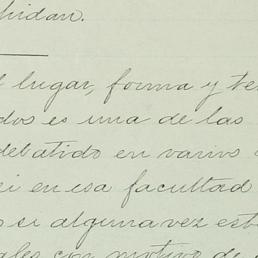 pidan.
el lugar, forma y te
dos es una de las
debatido en varios
si en esa facultad
o si alguna vez est
ales con motivo de